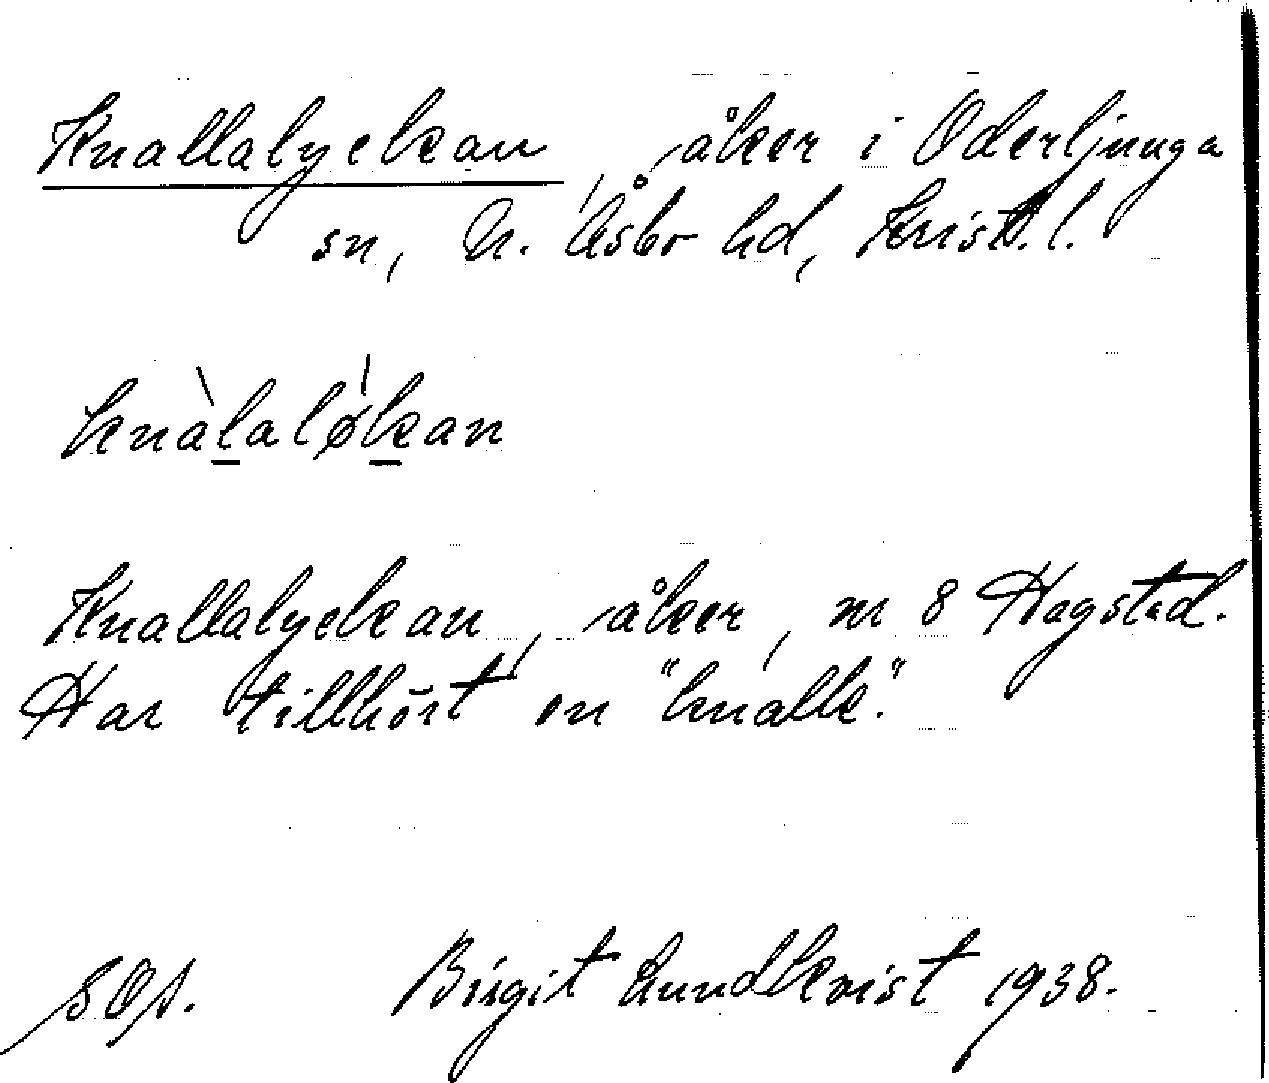 Knallalyckan, åker i Oderljunga
sn, N. Åsbo hd, Krist. l.
knàlaløkan
Knallalyckan, åker, nr 8 Hagstad.
Har tillhört en "knalle."
Birgit Lundkvist 1938.